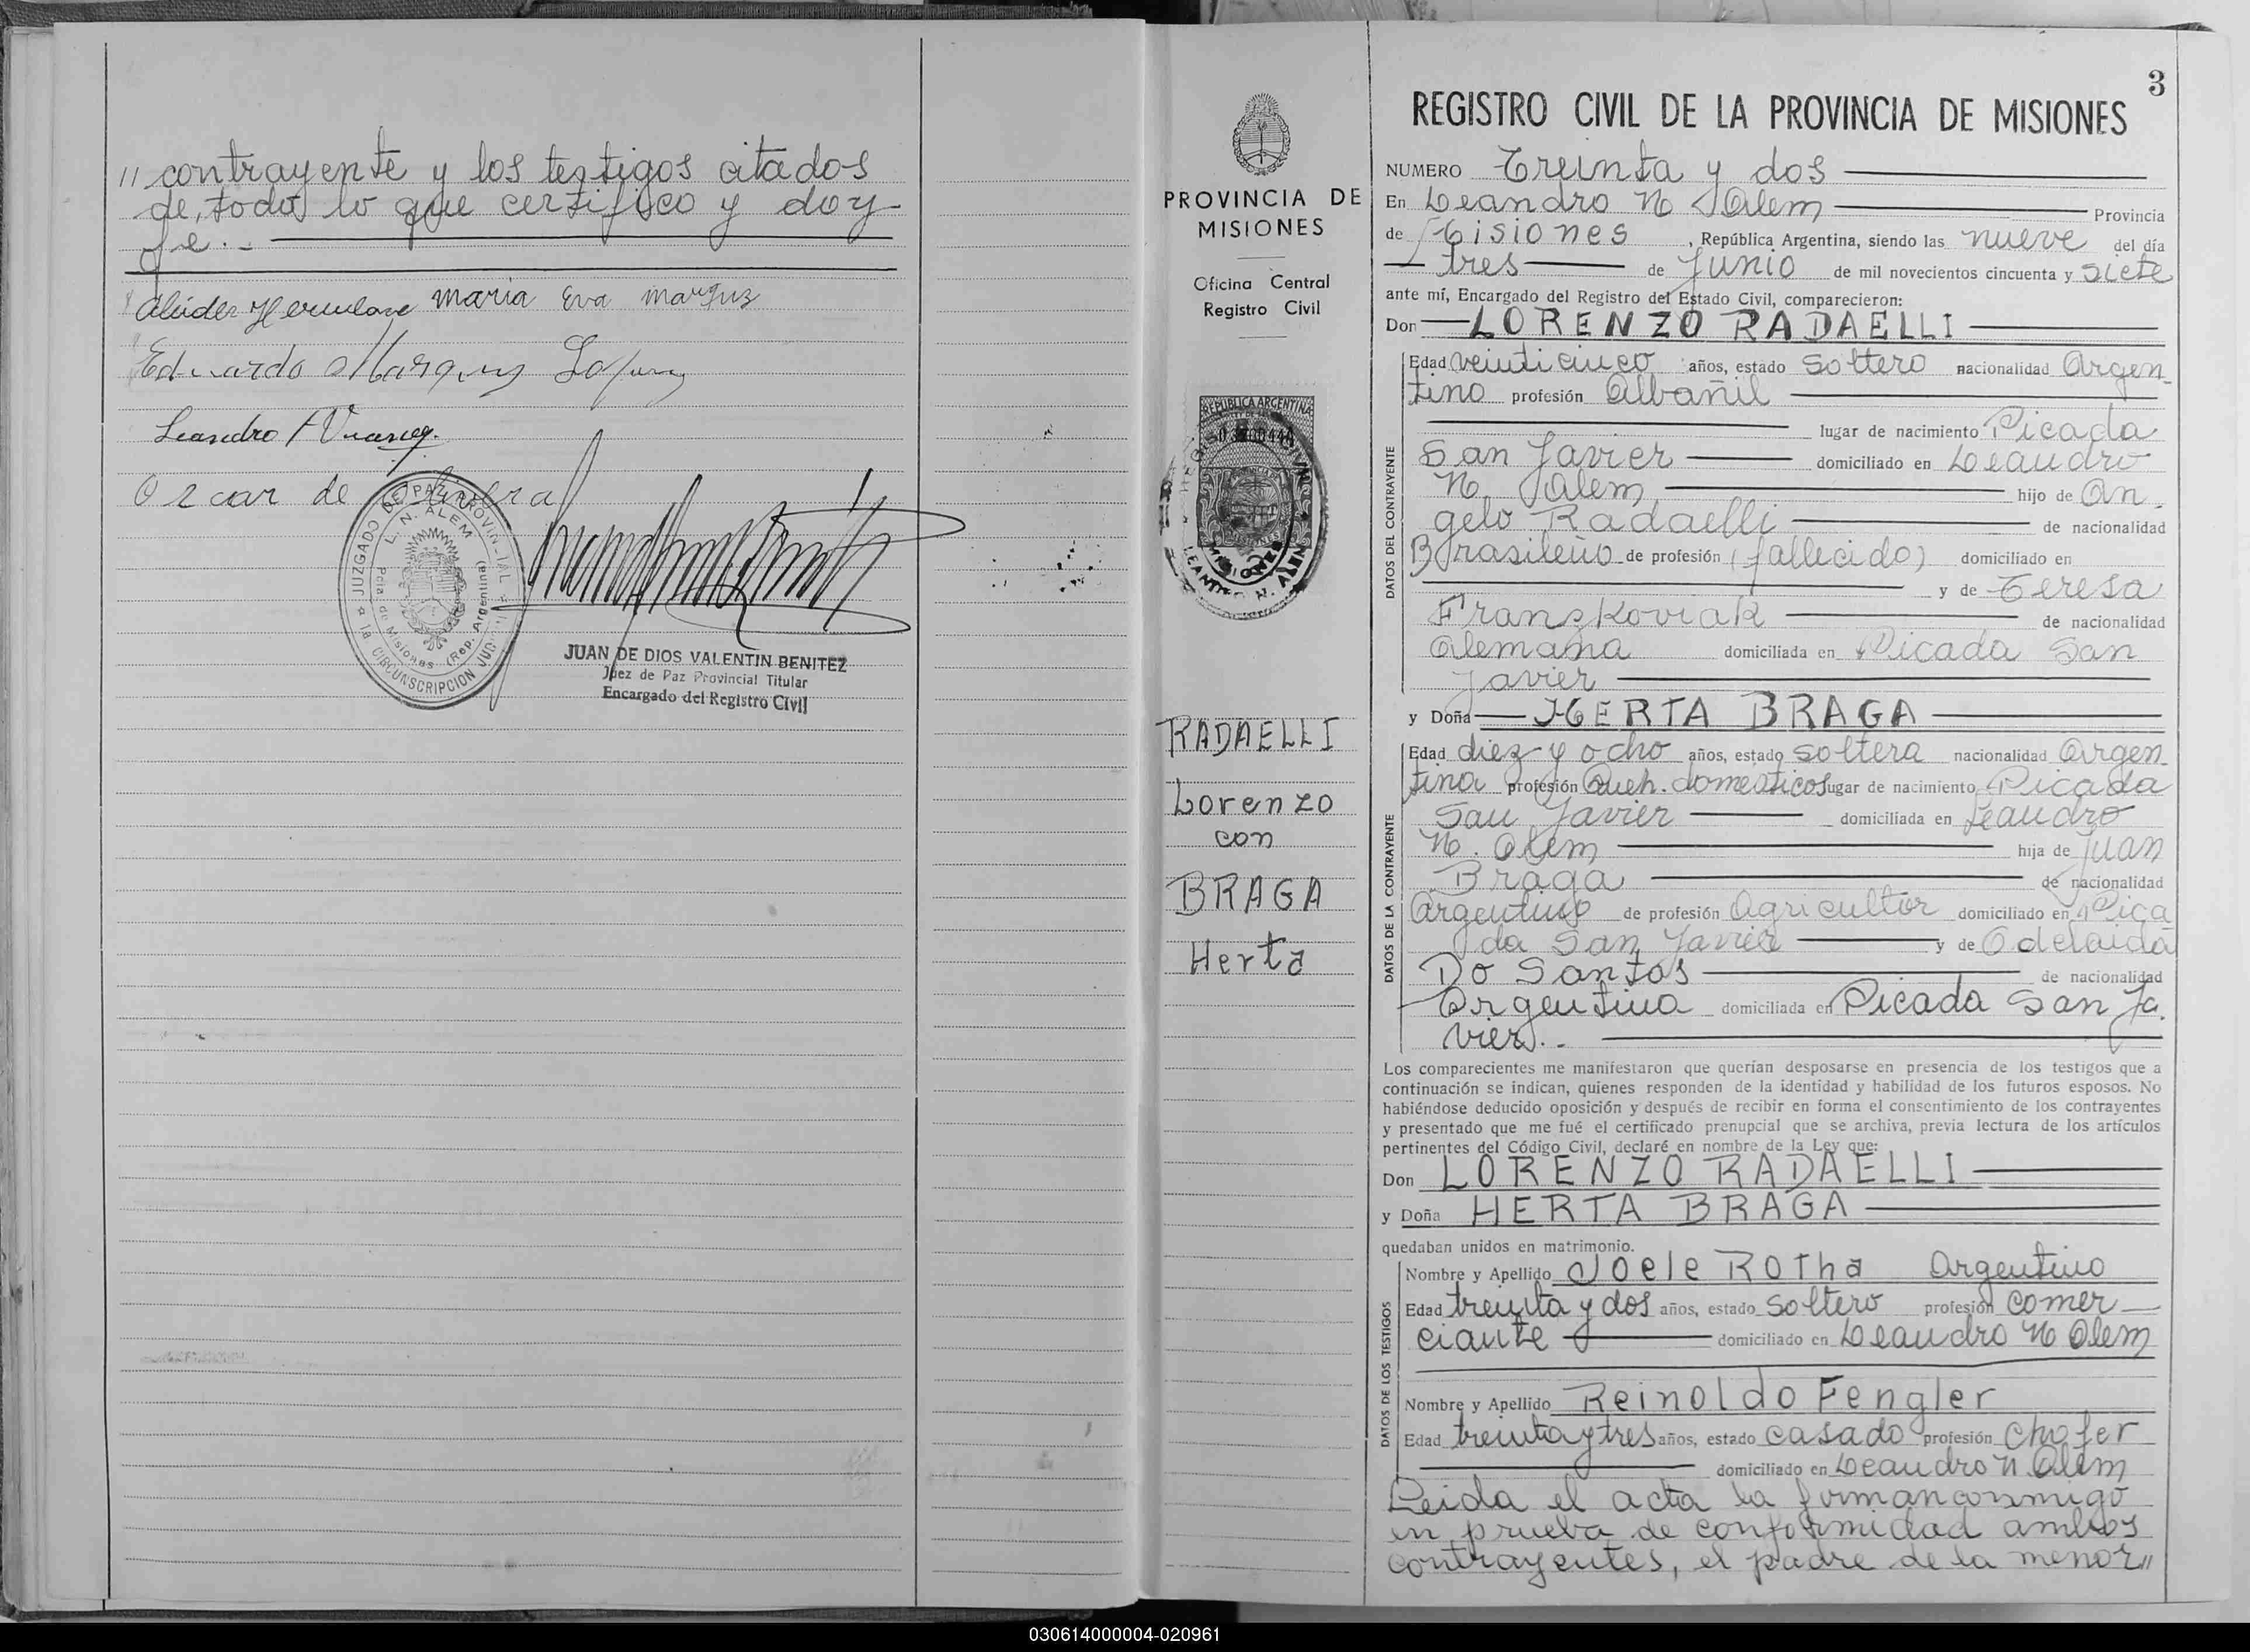 // contrayente y los testigos citados
de todo lo que certifico y doy
fe. -
Maria Eva Marquez
Eduardo Marquez
Leandro
Oscar de
JUZGADO DE PAZ PROVINCIAL
L. N. ALEM
Pcia de Misiones (Rep. Argentina)
1a CIRCUNSCRIPCION JUD
JUAN DE DIOS VALENTIN BENITEZ
Juez de Paz Provincial Titular
Encargado del Registro Civil
PROVINCIA DE
MISIONES
Oficina Central
Registro Civil
REPUBLICA ARGENTINA
MISIONES
LEANDRO N. ALEM
RADAELLI
Lorenzo
con
BRAGA
Herta
3
REGISTRO CIVIL DE LA PROVINCIA DE MISIONES
NUMERO Treinta y dos
En Leandro N Alem Provincia
de Misiones, República Argentina, siendo las nueve del día
tres de Junio de mil novecientos cincuenta y siete
ante mí, Encargado del Registro del Estado Civil, comparecieron:
Don LORENZO RADAELLI
DATOS DEL CONTRAYENTE
Edad veinticinco años, estado soltero nacionalidad Argen-
tino profesión Albañil
lugar de nacimiento Picada
San Javier domiciliado en Leandro
N. Alem hijo de An-
gelo Radaelli de nacionalidad
Brasileño de profesión (fallecido) domiciliado en
y de Teresa
Franzkoviak de nacionalidad
Alemana domiciliada en Picada San
Javier
y Doña HERTA BRAGA
DATOS DE LA CONTRAYENTE
Edad diez y ocho años, estado soltera nacionalidad Argen-
tina profesión Queh. domesticos lugar de nacimiento Picada
San Javier domiciliada en Leandro
N. Alem hija de Juan
Braga de nacionalidad
Argentino de profesión Agricultor domiciliado en Pica
da San Javier y de Adelaida
Do Santos de nacionalidad
Argentina domiciliada en Picada San Ja-
vier. -
Los comparecientes me manifestaron que querían desposarse en presencia de los testigos que a
continuación se indican, quienes responden de la identidad y habilidad de los futuros esposos. No
habiéndose deducido oposición y después de recibir en forma el consentimiento de los contrayentes
y presentado que me fué el certificado prenupcial que se archiva, previa lectura de los artículos
pertinentes del Código Civil, declaré en nombre de la Ley que:
Don LORENZO RADAELLI
y Doña HERTA BRAGA
quedaban unidos en matrimonio.
DATOS DE LOS TESTIGOS
Nombre y Apellido Joele Rotha Argentino
Edad treinta y dos años, estado soltero profesión comer-
ciante domiciliado en Leandro N Alem
Nombre y Apellido Reinoldo Fengler
Edad treinta y tres años, estado casado profesión Chofer
domiciliado en Leandro N. Alem
Leida el acta la firman conmigo
en prueba de conformidad ambos
contrayentes, el padre de la menor //
030614000004-020961